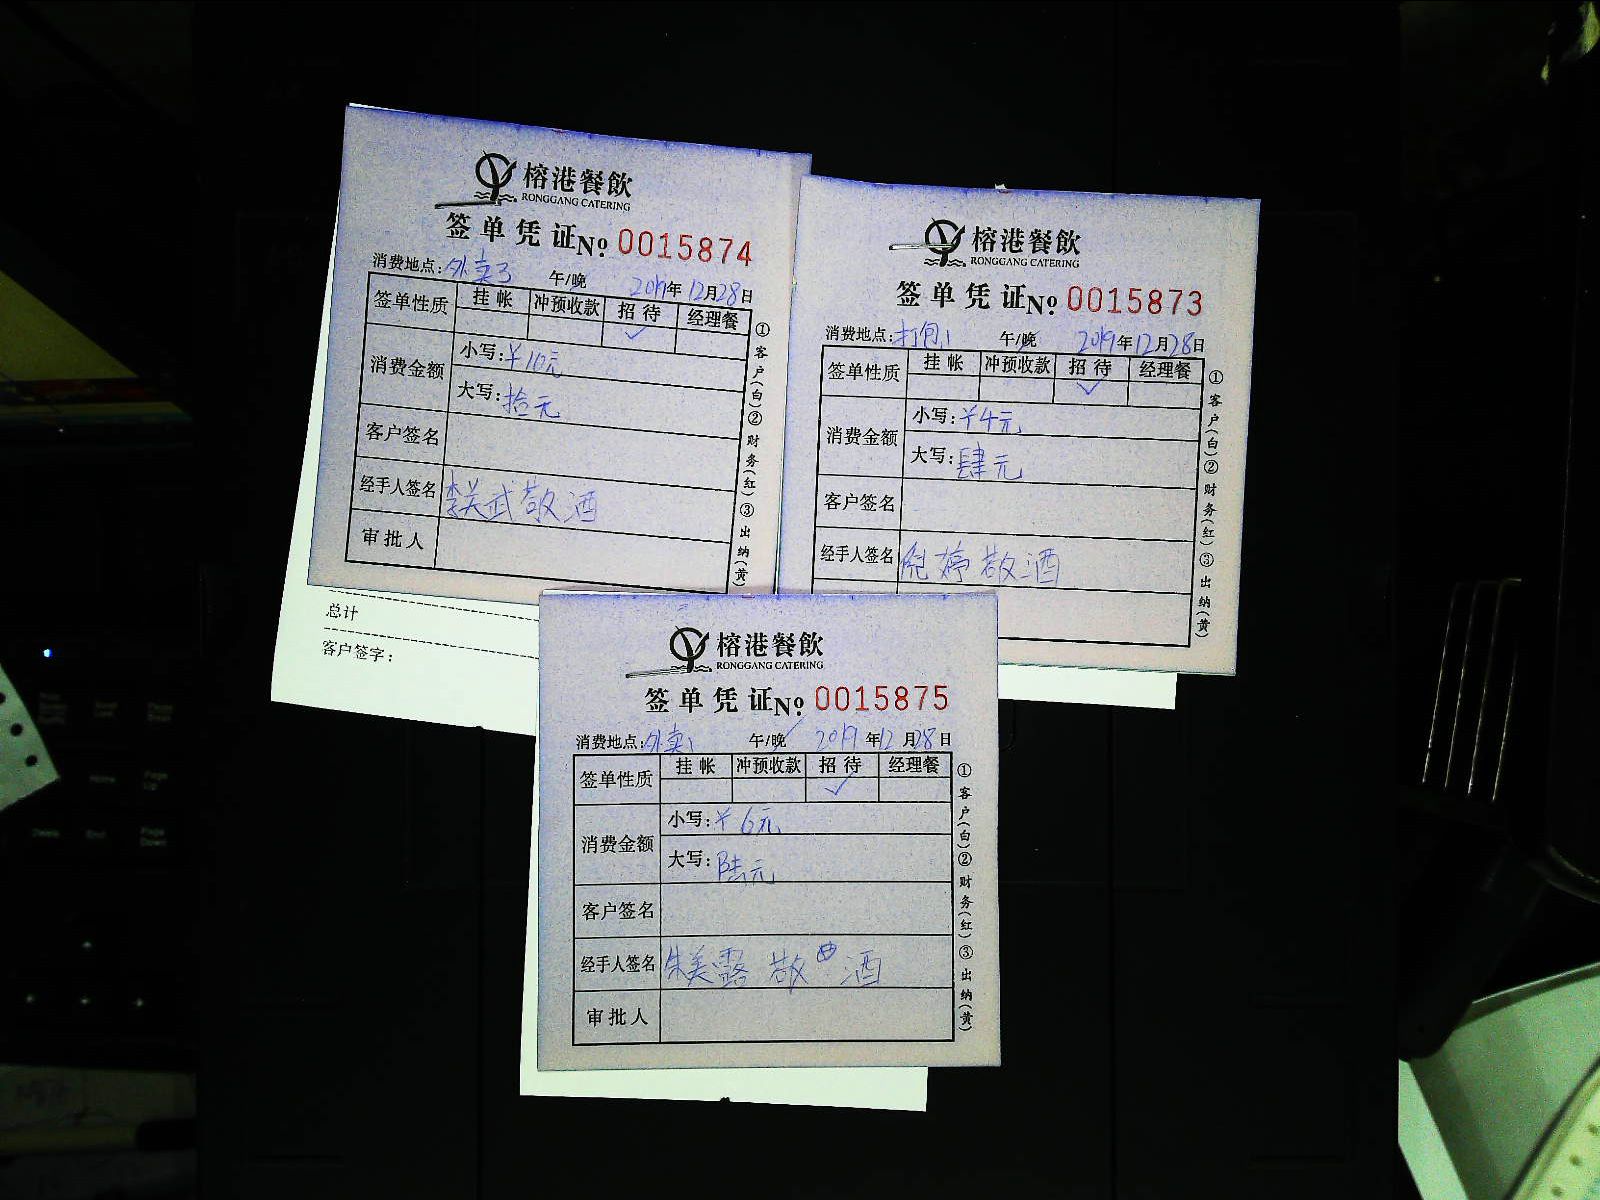 榕港餐飲
RONGGANG CATERING
签单凭证№ 0015874
消费地点:外卖3 午/晚 2019年12月28日
签单性质 挂帐 冲预收款 招待 经理餐
✓
消费金额 小写:¥10元
大写:拾元
客户签名
经手人签名 李关武敬酒
审批人
①客户(白)②财务(红)③出纳(黄)
总计
客户签字:
榕港餐飲
RONGGANG CATERING
签单凭证№ 0015873
消费地点:打包1 午/晚 2019年12月28日
签单性质 挂帐 冲预收款 招待 经理餐
✓
消费金额 小写:¥4元
大写:肆元
客户签名
经手人签名 倪婷敬酒
①客户(白)②财务(红)③出纳(黄)
榕港餐飲
RONGGANG CATERING
签单凭证№ 0015875
消费地点:外卖1 午/晚 2019年12月28日
签单性质 挂帐 冲预收款 招待 经理餐
✓
消费金额 小写:¥6元
大写:陆元
客户签名
经手人签名 朱美露敬酒
审批人
①客户(白)②财务(红)③出纳(黄)